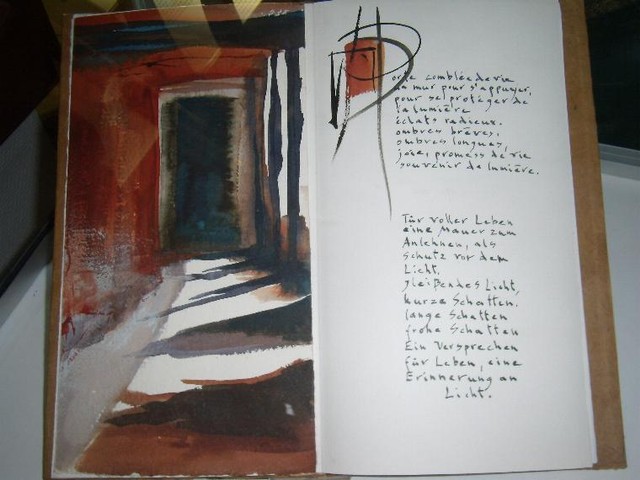 Porte comblée de vie
un mur pour s'appuyer,
pour se protéger de
la lumière
éclats radieux.
ombres brèves,
ombres longues,
joie, promess de vie
souvenir de lumière.
Tür voller Leben
eine Mauer zum
Anlehnen, als
Schutz vor dem
Licht.
gleißendes Licht,
kurze Schatten.
lange Schatten
frohe Schatten
Ein Versprechen
für Leben, eine
Erinnerung an
Licht.